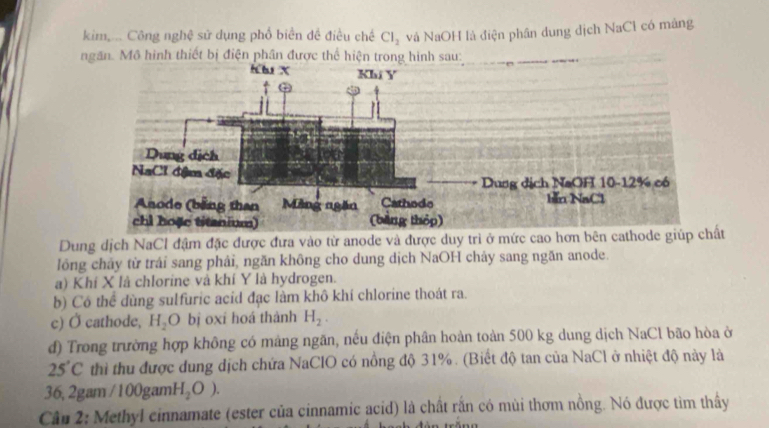 kim,... Công nghệ sử dụng phổ biến để điều chế Cl₂ và NaOH là điện phân dung dịch NaCl có màng
ngăn. Mô hình thiết bị điện phân được thể hiện trong hình sau:
Khí X
Khí Y
Dung dịch
NaCl đậm đặc
Dung dịch NaOH 10-12% có
lẫn NaCl
Anode (bằng than
chì hoặc titanium)
Màng ngăn
Cathode
(bằng thép)
Dung dịch NaCl đậm đặc được đưa vào từ anode và được duy trì ở mức cao hơn bên cathode giúp chất
lỏng chảy từ trái sang phải, ngăn không cho dung dịch NaOH chảy sang ngăn anode.
a) Khí X là chlorine và khí Y là hydrogen.
b) Có thể dùng sulfuric acid đặc làm khô khí chlorine thoát ra.
c) Ở cathode, H₂O bị oxi hoá thành H₂.
d) Trong trường hợp không có màng ngăn, nếu điện phân hoàn toàn 500 kg dung dịch NaCl bão hòa ở
25°C thì thu được dung dịch chứa NaClO có nồng độ 31%. (Biết độ tan của NaCl ở nhiệt độ này là
36, 2gam / 100gamH₂O ).
Câu 2: Methyl cinnamate (ester của cinnamic acid) là chất rắn có mùi thơm nồng. Nó được tìm thấy